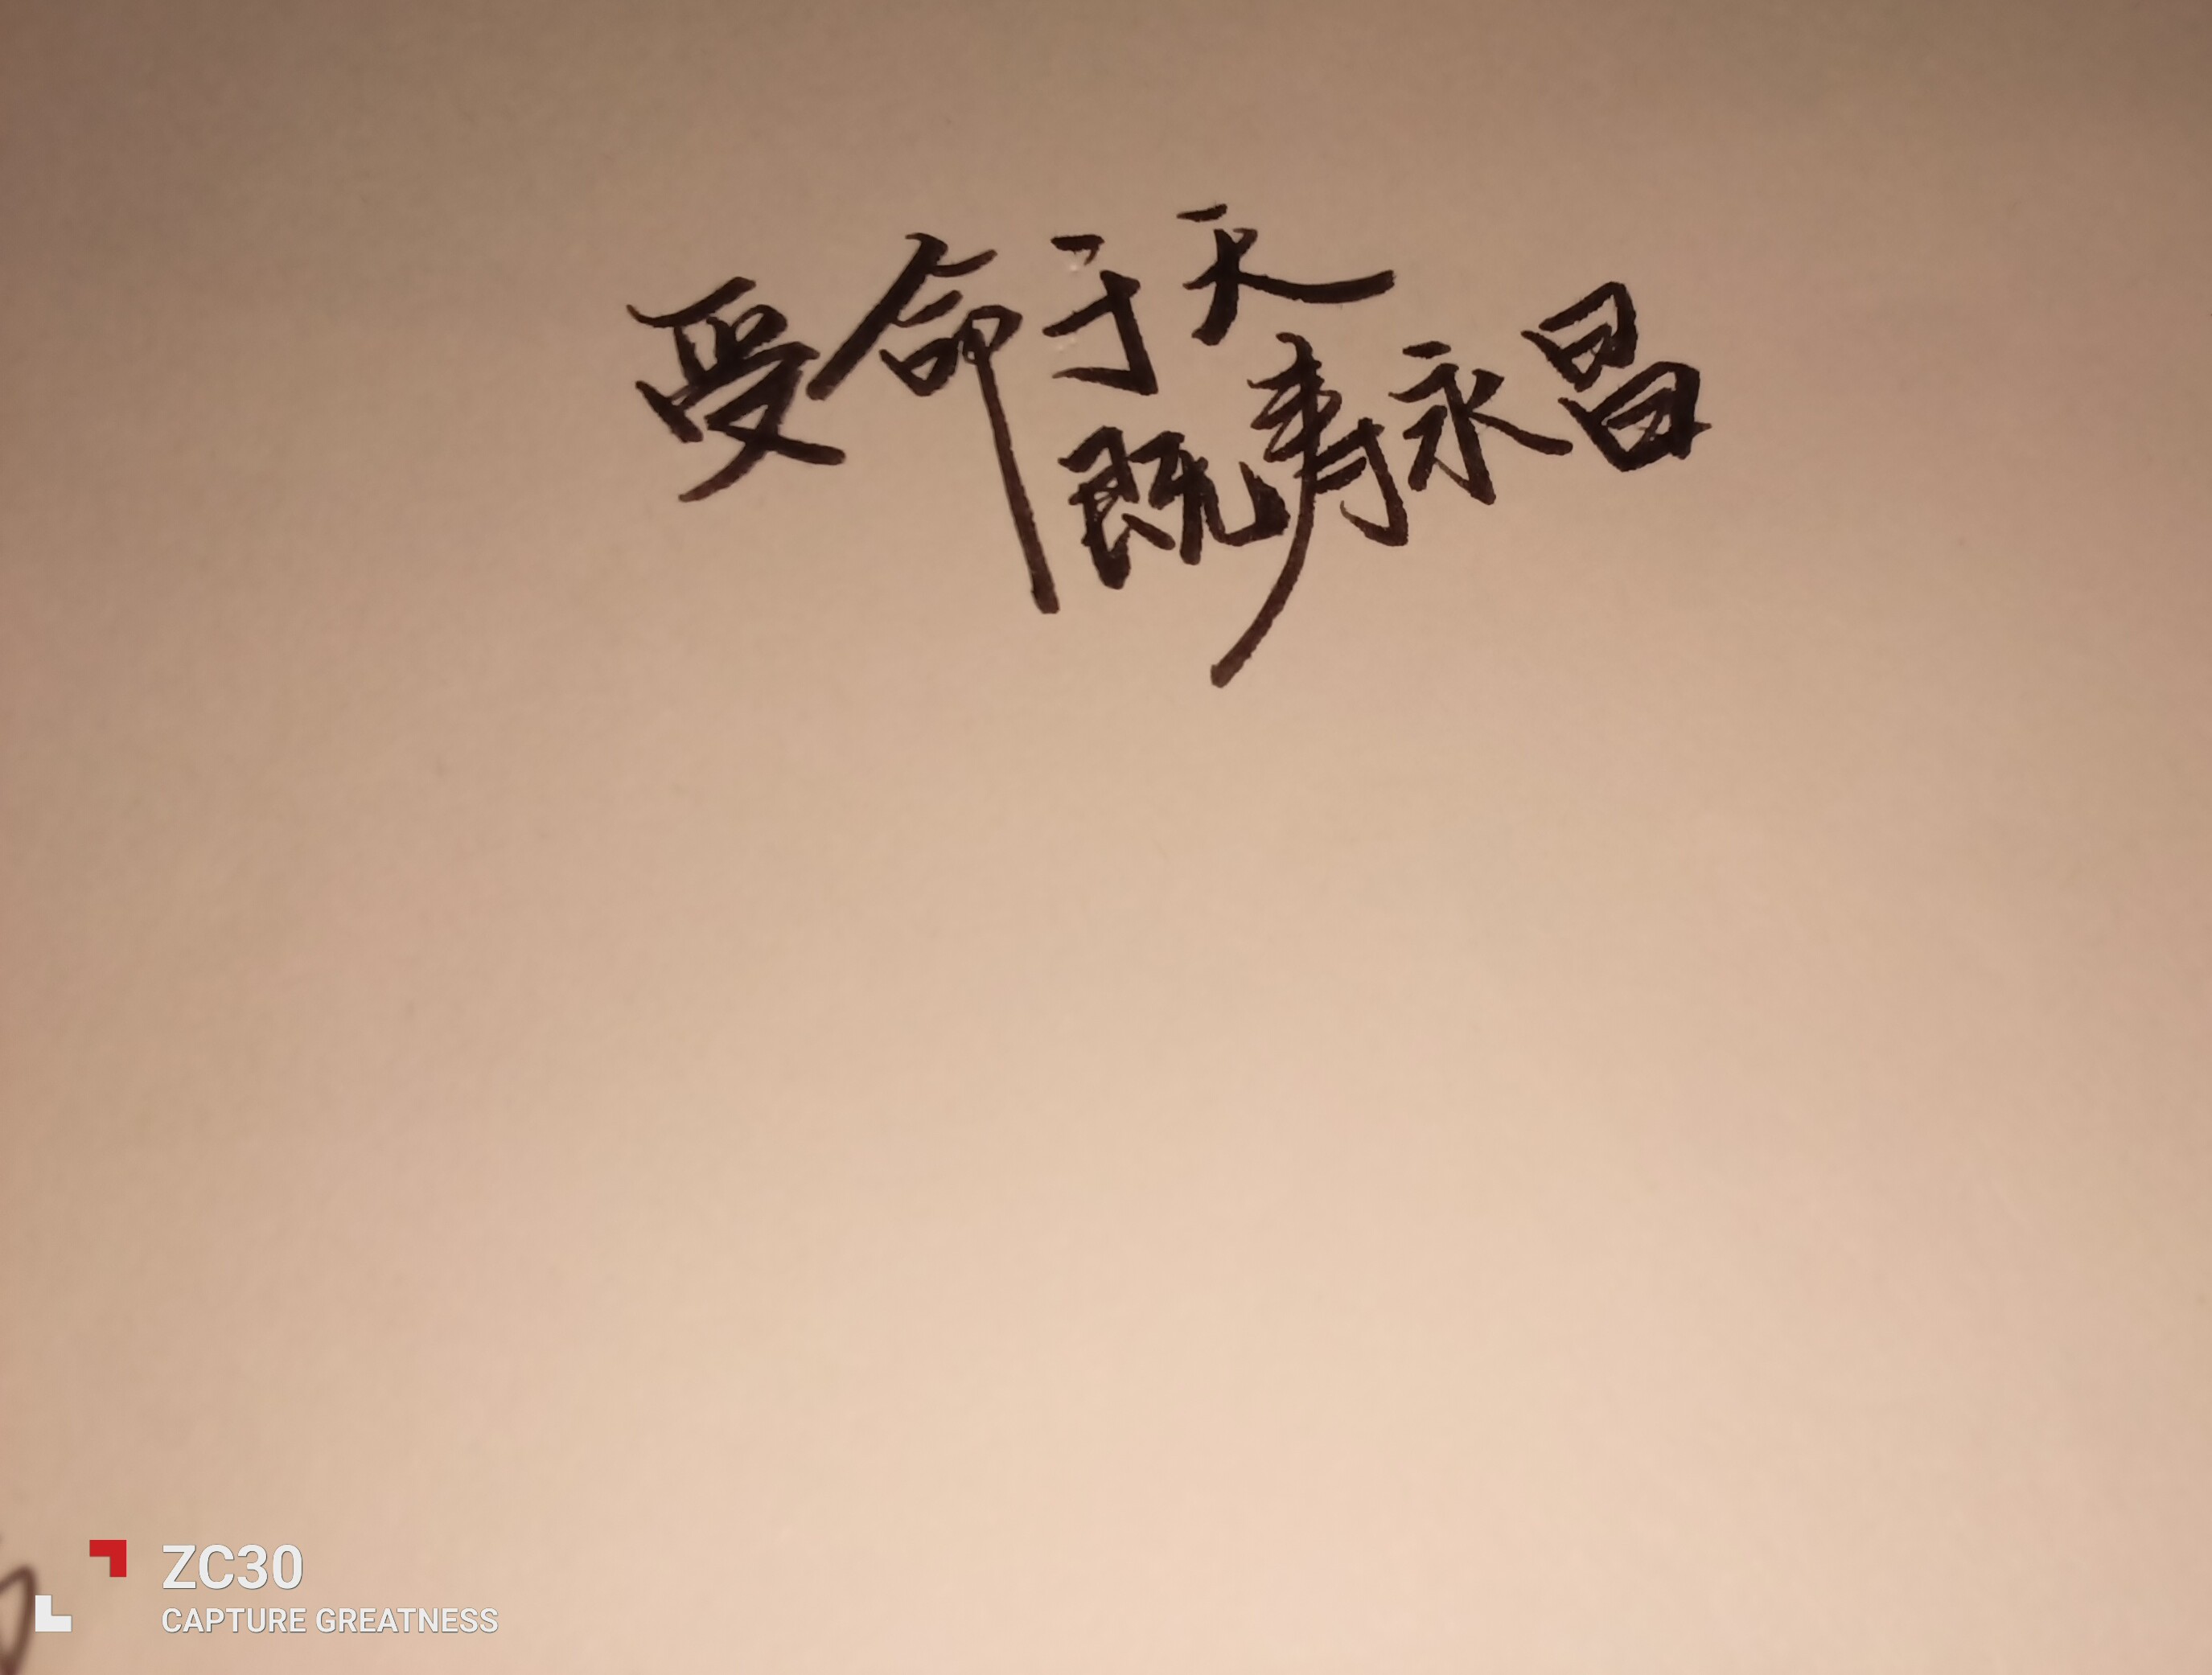 受命于天
既寿永昌
ZC30
CAPTURE GREATNESS